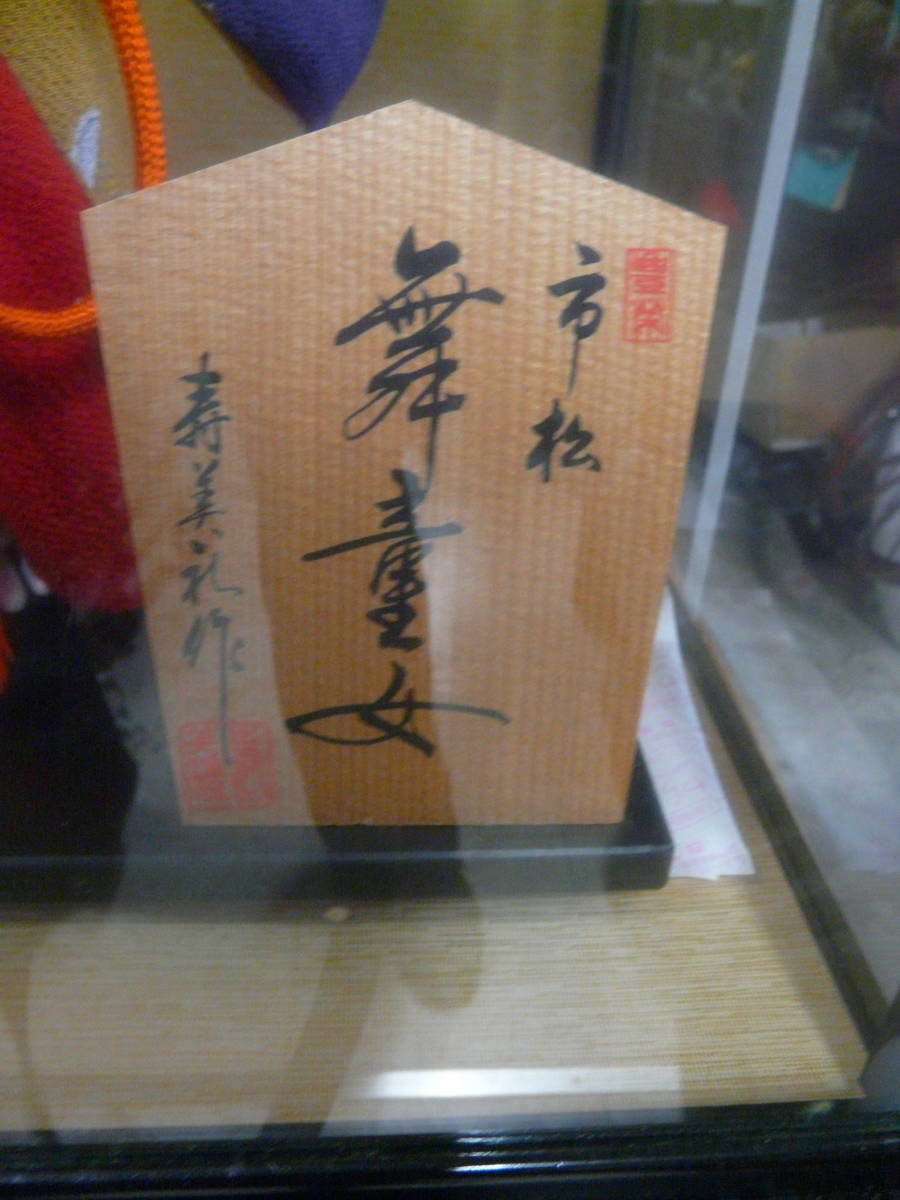 市松
舞童女
寿美礼作